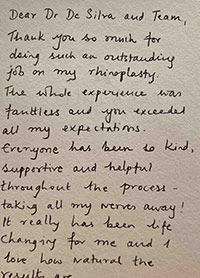 Dear Dr De Silva and Team,
Thank you so much for
doing such an outstanding
job on my rhinoplasty.
The whole experience was
faultless and you exceeded
all my expectations.
Everyone has been so kind,
supportive and helpful
throughout the process -
taking all my nerves away!
It really has been life
changing for me and I
love how natural the
results are